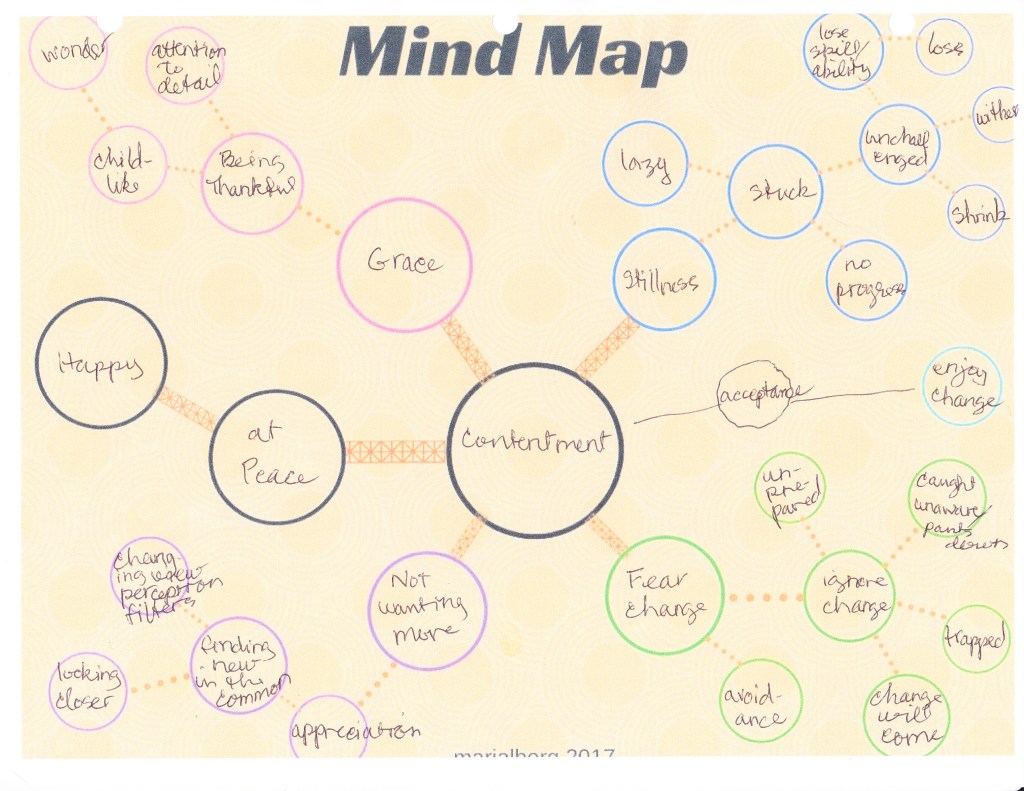 Mind Map
wonder
attention
to
detail
child-
like
Being
Thankful
Grace
lose
skill/
ability
lose
wither
unchall
enged
shrink
lazy
stuck
no
progress
Stillness
Happy
at
Peace
Contentment
acceptance
enjoy
change
un-
pre-
pared
caught
unaware/
pants
down
Fear
change
ignore
change
trapped
avoid-
ance
change
will
come
Not
wanting
more
chang-
ing view
perception
filters
finding
new
in the
common
looking
closer
appreciation
marialberg 2017